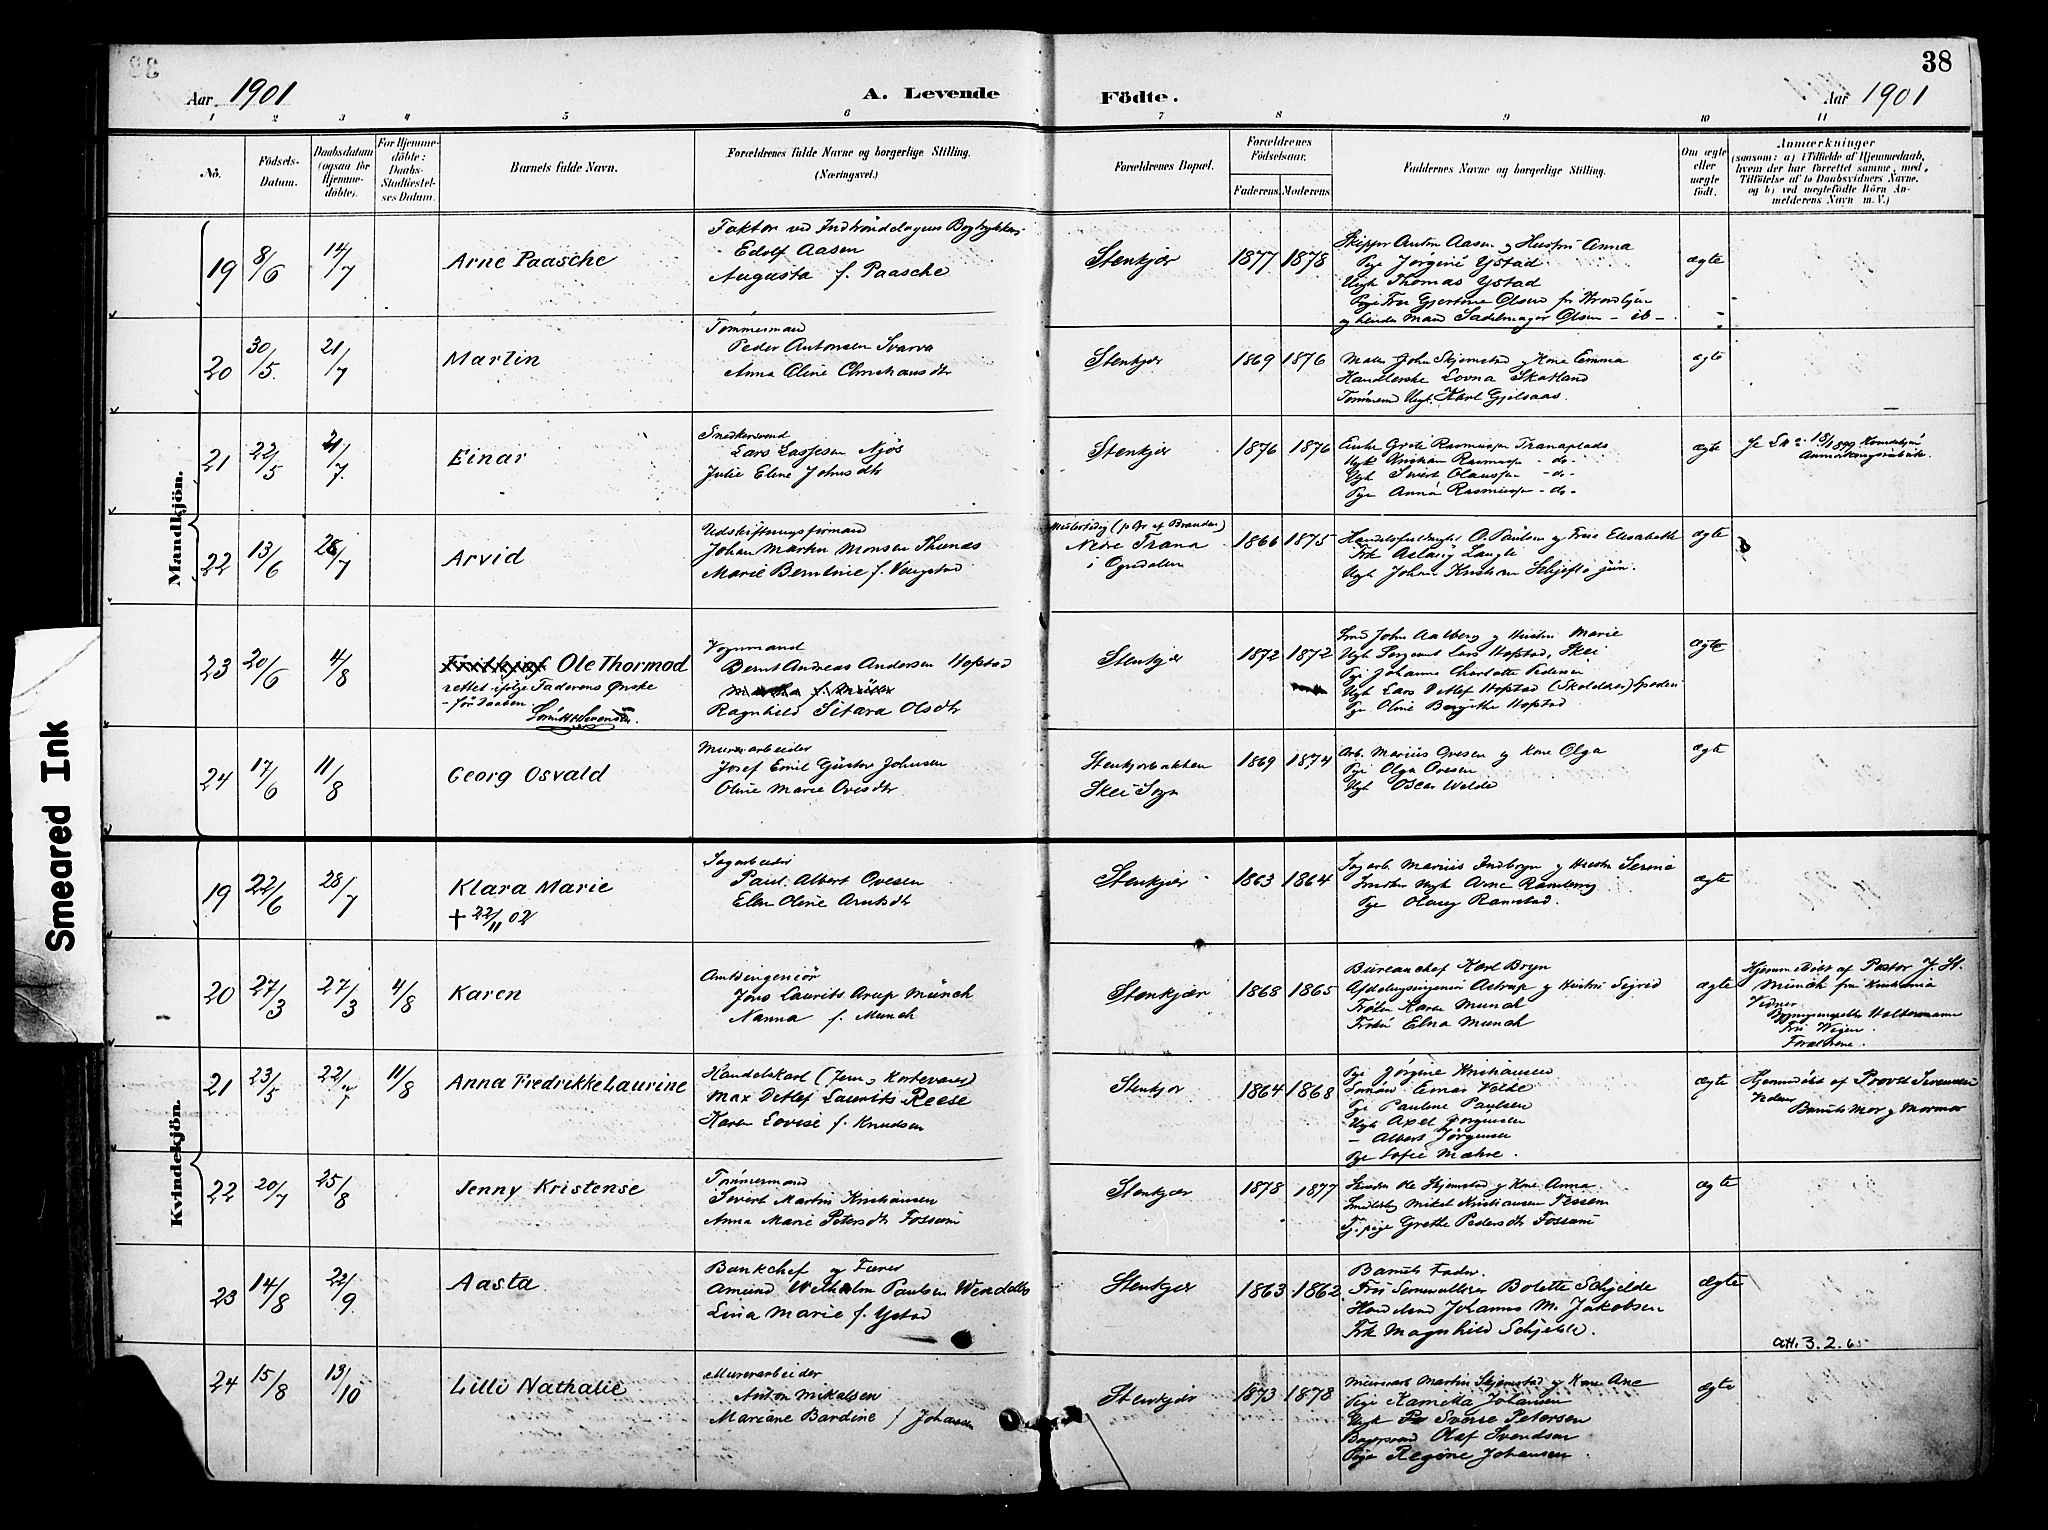 38
Aar 1901
A. Levende
Födte.
Aar 1901
1 2 3 4 5 6 7 8 9 10 11
No.
Födsels-Datum.
Daabsdatum (ogsaa för Hjemme-döbte).
For Hjemme-döbte: Daabs-Stadfæstel-ses Datum.
Barnets fulde Navn.
Forældrenes fulde Navne og borgerlige Stilling.
(Næringsvei.)
Forældrenes Bopæl.
Forældrenes Födselsaar.
Faderens. Moderens.
Faddernes Navne og borgerlige Stilling.
Om ægte eller uægte födt.
Anmærkninger
(saasom: a) i Tilfælde af Hjemmedaab,
hvem der har forrettet samme, med
Tilföielse af to Daabsvidners Navne,
og b) ved uegtefödte Börn An-
melderens Navn m. V.)
Smeared Ink
Mandkjön.
19 8/6 14/7 Arne Paasche
Faktor ved Indtrøndelagens Bogtrykkeri
Edolf Aasen
Augusta f. Paasche
Stenkjær 1877 1878
Skipper Anton Aasen og Hustru Anna
Pige Jørgine Ystad
Ungk Thomas Ystad
Pige Gjertine Olsen
Sadelmager Olsen
ægte
20 30/5 21/7 Martin
Tømmermand
Peder Antonsen Svarva
Anna Oline Christiansdtr
Stenkjær 1869 1876
Maler John Skjemstad og Kone Emma
Handlerske Lovna Skatland
Tømmermd Ungk. Karl Gjelsaas.
ægte
21 22/5 21/7 Einar
Snedkersvend
Lars Lassesen Njøs
Julie Eline Johnsdtr
Stenkjær 1876 1876
Enke Grete Rasmussen Tranaplads
Ungk Kristian Rasmussen -do-
Ungk Sivert Olaussen -do-
Pige Anna Rasmussen -do-
ægte
22 13/6 28/7 Arvid
Udskiftningsformand
Johan Martin Monsen Thunæs
Marie Berntine f. Vangstad
Midlertidig (p. Gr. af Branden)
Nedre Trana
i Ogndalen
1866 1875
Handelsfuldmægtig O. Paulsen og Frue Elisabeth
Frk Aslaug Langli
Ungk Johan Kristian Schjeflo jun.
ægte
23 20/6 4/8 Ole Thormod
rettet ifølge Faderens Ønske
- før Daaben
Vognmand
Bernt Andreas Andersen Hofstad
Ragnhild Sitara Olsdtr
Stenkjær 1872 1872
Smed John Aalberg og Hustru Marie
Ungk Sergeant Lars Hofstad, Skei
Pige Johanne Charlotte Pedersen
Ungk Lars Detlef Hofstad
Pige Oline Bergitte Hofstad
ægte
24 17/6 11/8 Georg Osvald
Murarbeider
Josef Emil Gustav Johnsen
Oline Marie Ovesdtr
Stenkjærbakken
Skei Sogn
1869 1874
Arb. Marius Ovesen og Kone Olga
Pige Olga Ovesen
Ungk Oscar Welde
ægte
Kvindekjön.
19 22/6 28/7 Klara Marie
† 22/11 02
Sagarbeider
Paul Albert Ovesen
Elen Oline Arntsdtr
Stenkjær 1863 1864
Sagarb. Marius Indbryn og Hustru Serine
Ungk Arne Ramberg
Pige Olang Ramstad.
ægte
20 27/3 27/3 4/8 Karen
Amtsingeniør
Jens Laurits Arup Münch
Nanna f. Munch
Stenkjær 1868 1865
Bureauchef Karl Bryn
Afdelingsingeniør Astrup og Hustru Sigrid
Frøken Karen Munch
Frøken Elna Munch
ægte
Hjemmedøbt af Pastor J. St.
Münch fra Kristiania
Vidner
Holtermann
Forældrene.
21 23/5 22/7 11/8 Anna Fredrikke Laurine
Handelskarl (Jern- Kortevarer)
Max Detlef Laurits Reese
Karen Lovise f. Knudsen
Stenkjær 1864 1868
Pige Jørgine Kristiansen
Einar Welde
Pige Pauline Paulsen
Ungk Axel Jørgensen
- Albert Jørgensen
Pige Sofie Mæhre.
ægte
Hjemmedøbt af Provst Sørensen
Vidner
Barnets Mor og Mormor
22 20/7 25/8 Jenny Kristense
Tømmermand
Sivert Martin Kristiansen
Anna Marie Petersdtr Fossum
Stenkjær 1878 1877
Ole Skjemstad og Kone Anna.
Mikal Kristiansen Fessem
Tj. pige Grethe Pedersdtr Fossum
ægte
23 14/8 22/9 Aasta
Bankchef og
Amund Wilhelm Paulsen Wendelbo
Lina Marie f. Ystad
Stenkjær 1863 1862
Barnets Fader.
Bolette Schjelde
Handelsmd Johannes M. Jakobsen
Frk Magnhild Schjelde.
ægte
att. 3.2.6
24 15/8 13/10 Lilli Nathalie
Murerarbeider
Anton Mikalsen
Mariane Bardine f. Johansen
Stenkjær 1873 1878
Murerarb Martin Skjemstad og Kone Ane
Pige Kamilla Johansen
Ungk Sverre Petersen
Bagersvend Olaf Svendsen
Pige Regine Johansen
ægte